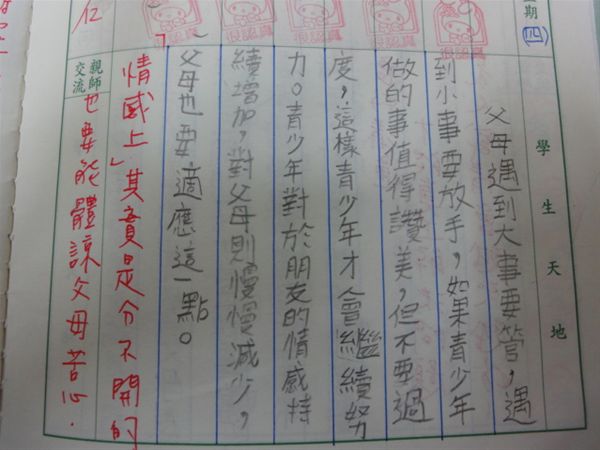 期(四)
很認真
很認真
很認真
很認真
很認真
學生天地
父母遇到大事要管，遇
到小事要放手，如果青少年
做的事值得讚美，但不要過
度，這樣青少年才會繼續努
力。青少年對於朋友的情感持
續增加，對父母則慢慢減少，
父母也要適應這一點。
「情感上」其實是分不開的
親師交流
也要能體諒父母苦心．